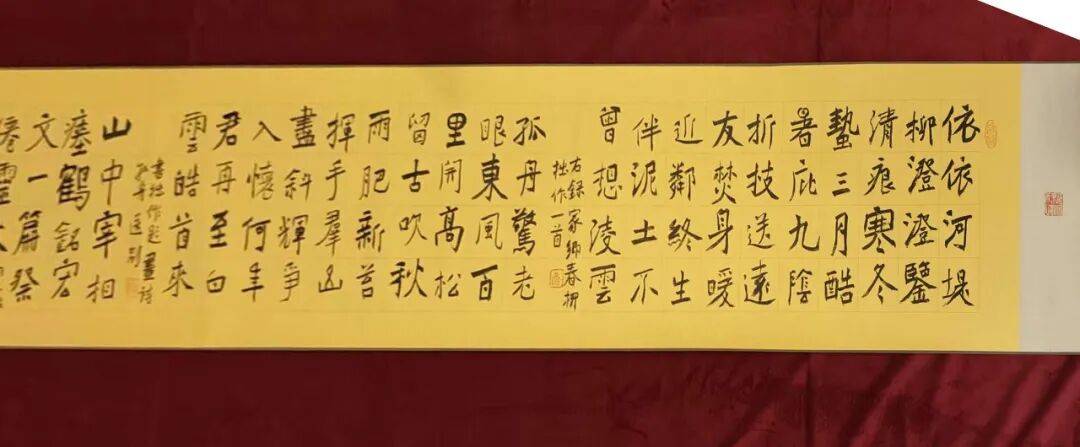 依依河堤
柳澄澄鑒
清痕寒冬
蟄三月酷
暑庇九陰
折技送遠
友焚身暖
近鄰終生
伴泥土不
曾想淩雲
右錄家鄉春柳
拙作一首
孤丹驚老
眼東風百
里開高松
留古吹秋
雨肥新苔
揮手羣山
盡斜輝爭
入懷何年
君再至白
雲皓首來
書拙作題畫詩
山中宰相
瘞鶴銘宏
文一篇祭